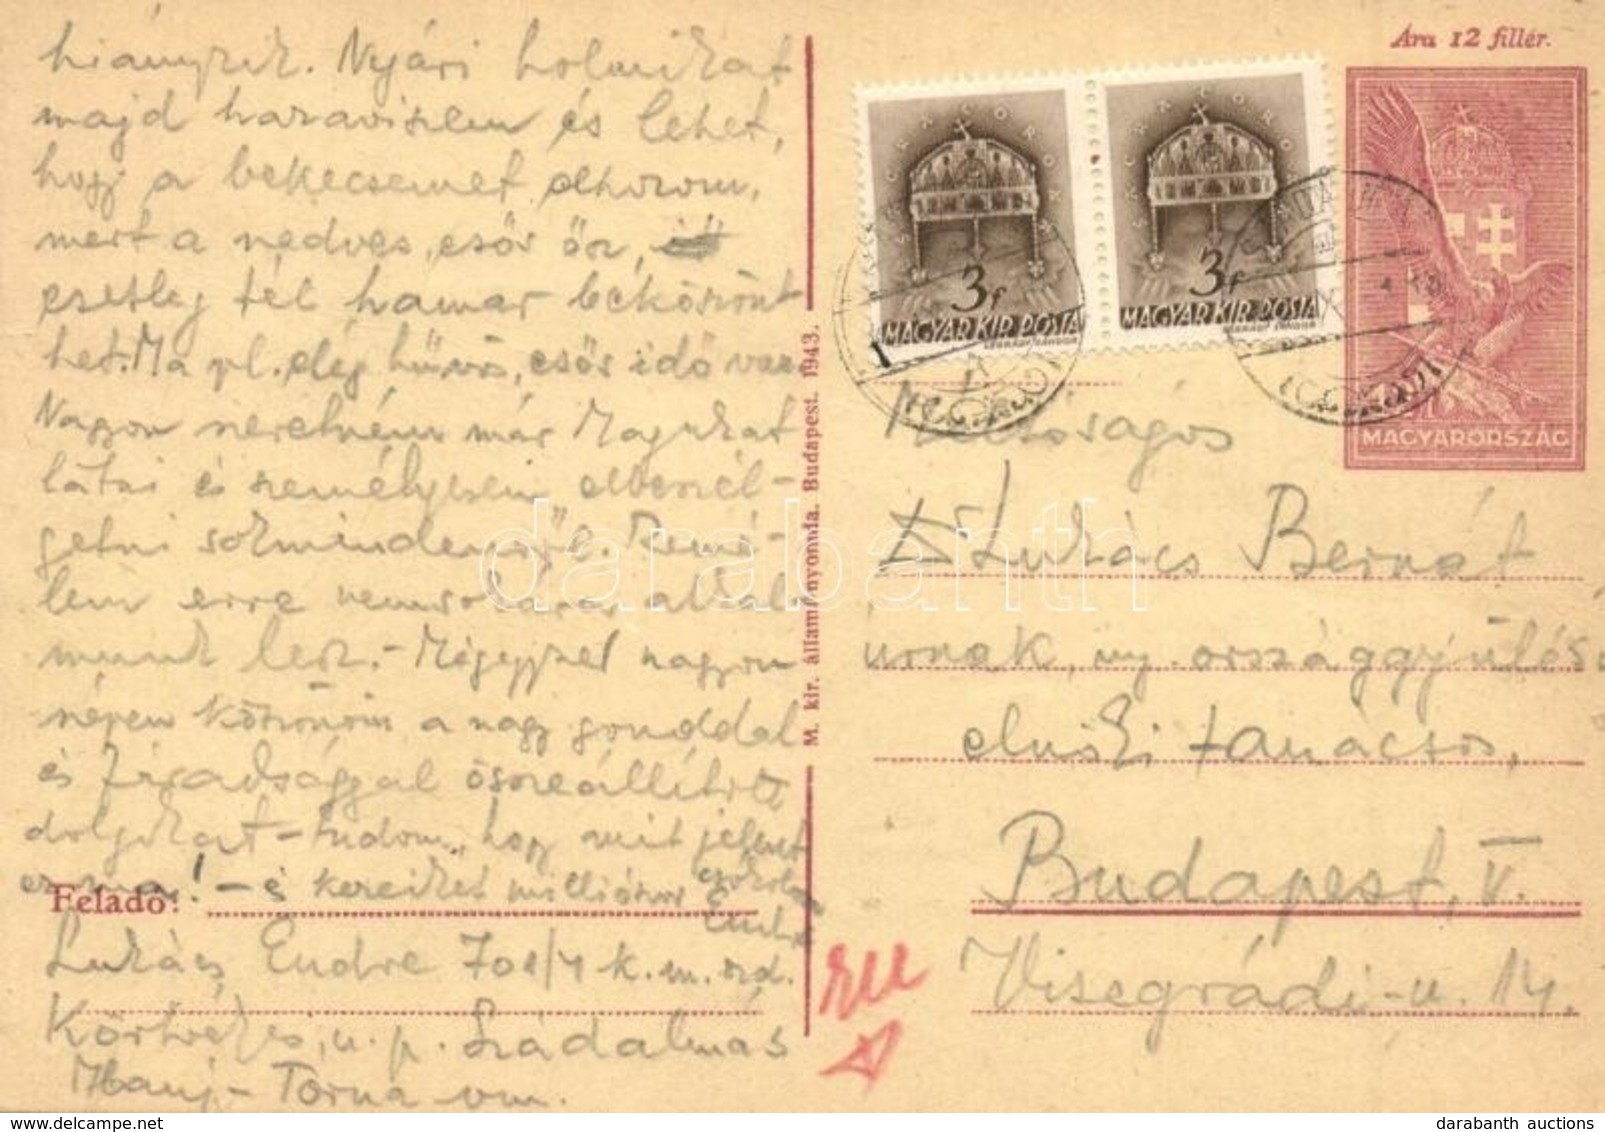 hiányzik. Nyári holmikat
majd hazaviszem és lehet,
hogy a bekecsemet elhozom,
mert a nedves, esős ősz,
esetleg tél hamar beköszönt
het. Ma pl. elég hűvös, esős idő van.
Nagyon szeretném már Magukat
látni és személyesen elbeszél-
getni sokmindenről. Remé-
lem erre nemsokára alkal
munk lesz. - Mégegyszer nagyon
szépen köszönöm a nagy gonddal
és fáradsággal összeállított
dolgokat - tudom, hogy mit jelent
ez ma! - és kezeiket milliószor csókolja
Endre
Feladó:
Lukács Endre 701/4 k. m. szd.
Körtvélyes, u. p. Szádalmás
Abauj-Torna vm.
M. kir. állami nyomda. Budapest. 1943.
Ára 12 fillér.
3f
MAGYAR KIR. POSTA
3f
MAGYAR KIR. POSTA
MAGYARORSZÁG
Méltóságos
Lukács Bernát
úrnak, ny. országgyűlési
elnöki tanácsos,
Budapest, V.
Visegrádi-u. 14.
darabanth
darabanth auctions